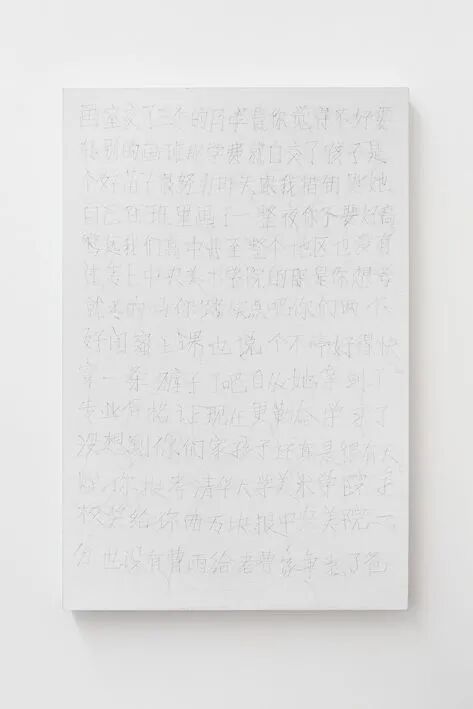 画室交了三个的月学费你觉得不好要
换别的画班那学费就白交了孩子是
个好苗子很努力昨天跟我借钥匙她
自己在班里画了一整夜你不要好高
骛远我们高中甚至整个地区也没有
考上中央美术学院的那是你想考
就考的吗你踏实点吧你们两个
好闺蜜上课也说个不停好得快
穿一条裤子了吧自从她拿到了
专业合格证现在更勤奋学习了
没想到你们家孩子还真是很有天
你报考清华大学美术学院学
校奖给你两万块报中央美院一
分也没有曹雨给老曹家争光了爸